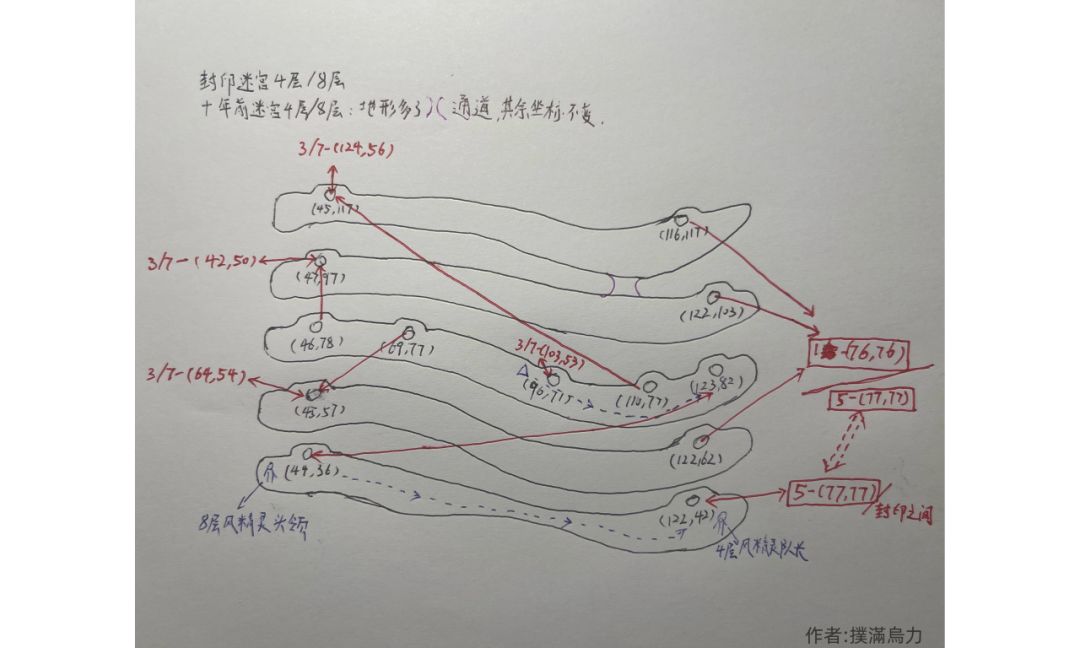 封印迷宫4层/8层
十年前迷宫4层/8层:地形多了)(通道,其余坐标不变.
3/7-(124,56)
(45,117)
(116,117)
3/7-(42,50)
(47,97)
(122,103)
(46,78)
(69,77)
3/7-(103,53)
(96,77)
(110,77)
(123,82)
3/7-(64,54)
(45,57)
(122,62)
(49,36)
(122,42)
-(76,76)
5-(77,77)
5-(77,77)/封印之间
8层风精灵头领
4层风精灵队长
作者:撲滿烏力